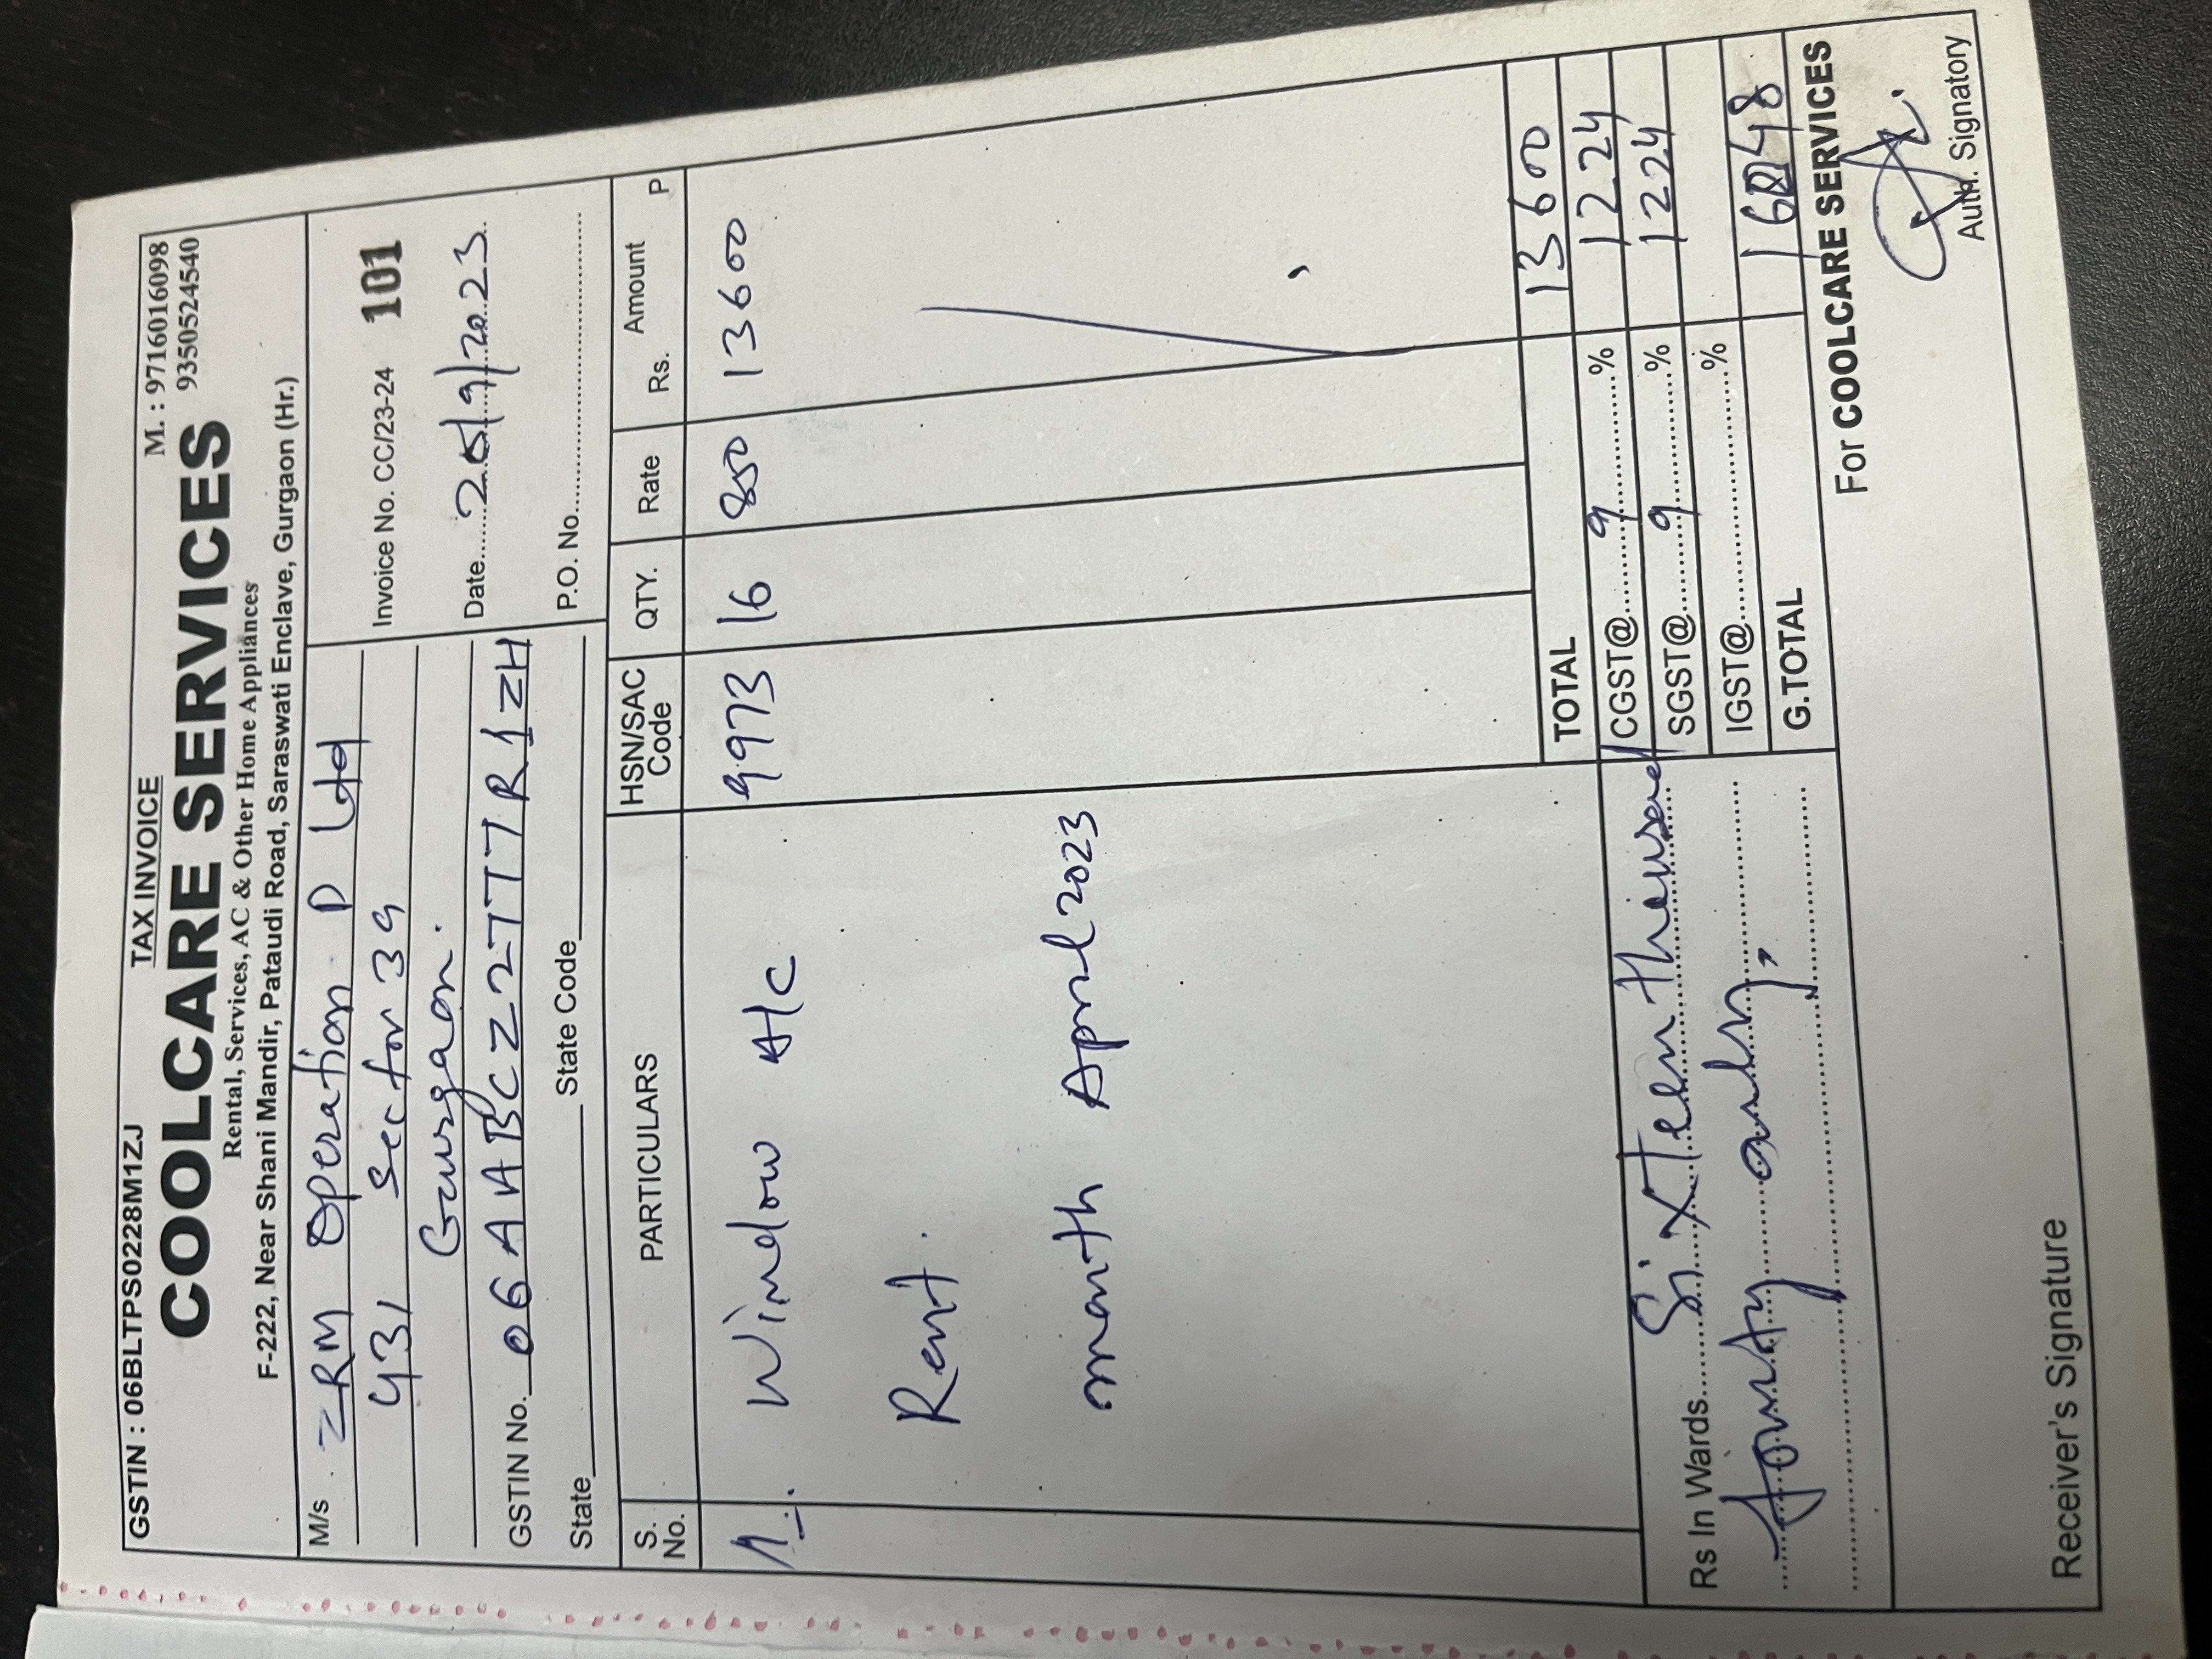 GSTIN : 06BLTPS0228M1ZJ
TAX INVOICE
M. : 9716016098
9350524540
COOLCARE SERVICES
Rental, Services, AC & Other Home Appliances
F-222, Near Shani Mandir, Pataudi Road, Saraswati Enclave, Gurgaon (Hr.)
M/s ZRM Operation P Ltd
431 Sector 39
Gurgaon.
GSTIN No. 06AABCZ2777R1ZH
State State Code
Invoice No. CC/23-24 101
Date 20/9/2023
P.O. No.
S. No. PARTICULARS HSN/SAC Code QTY. Rate Amount Rs. P
1. Window A/c 9973 16 850 13600
Rent.
month April 2023
TOTAL 13600
CGST@ 9 % 1224
SGST@ 9 % 1224
IGST@ %
G.TOTAL 16048
Rs In Wards Sixteen thousand
fourty only.
For COOLCARE SERVICES
Auth. Signatory
Receiver's Signature